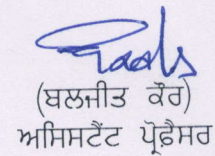 (ਬਲਜੀਤ ਕੌਰ)
ਅਸਿਸਟੈਂਟ ਪ੍ਰੋਫੈਸਰ